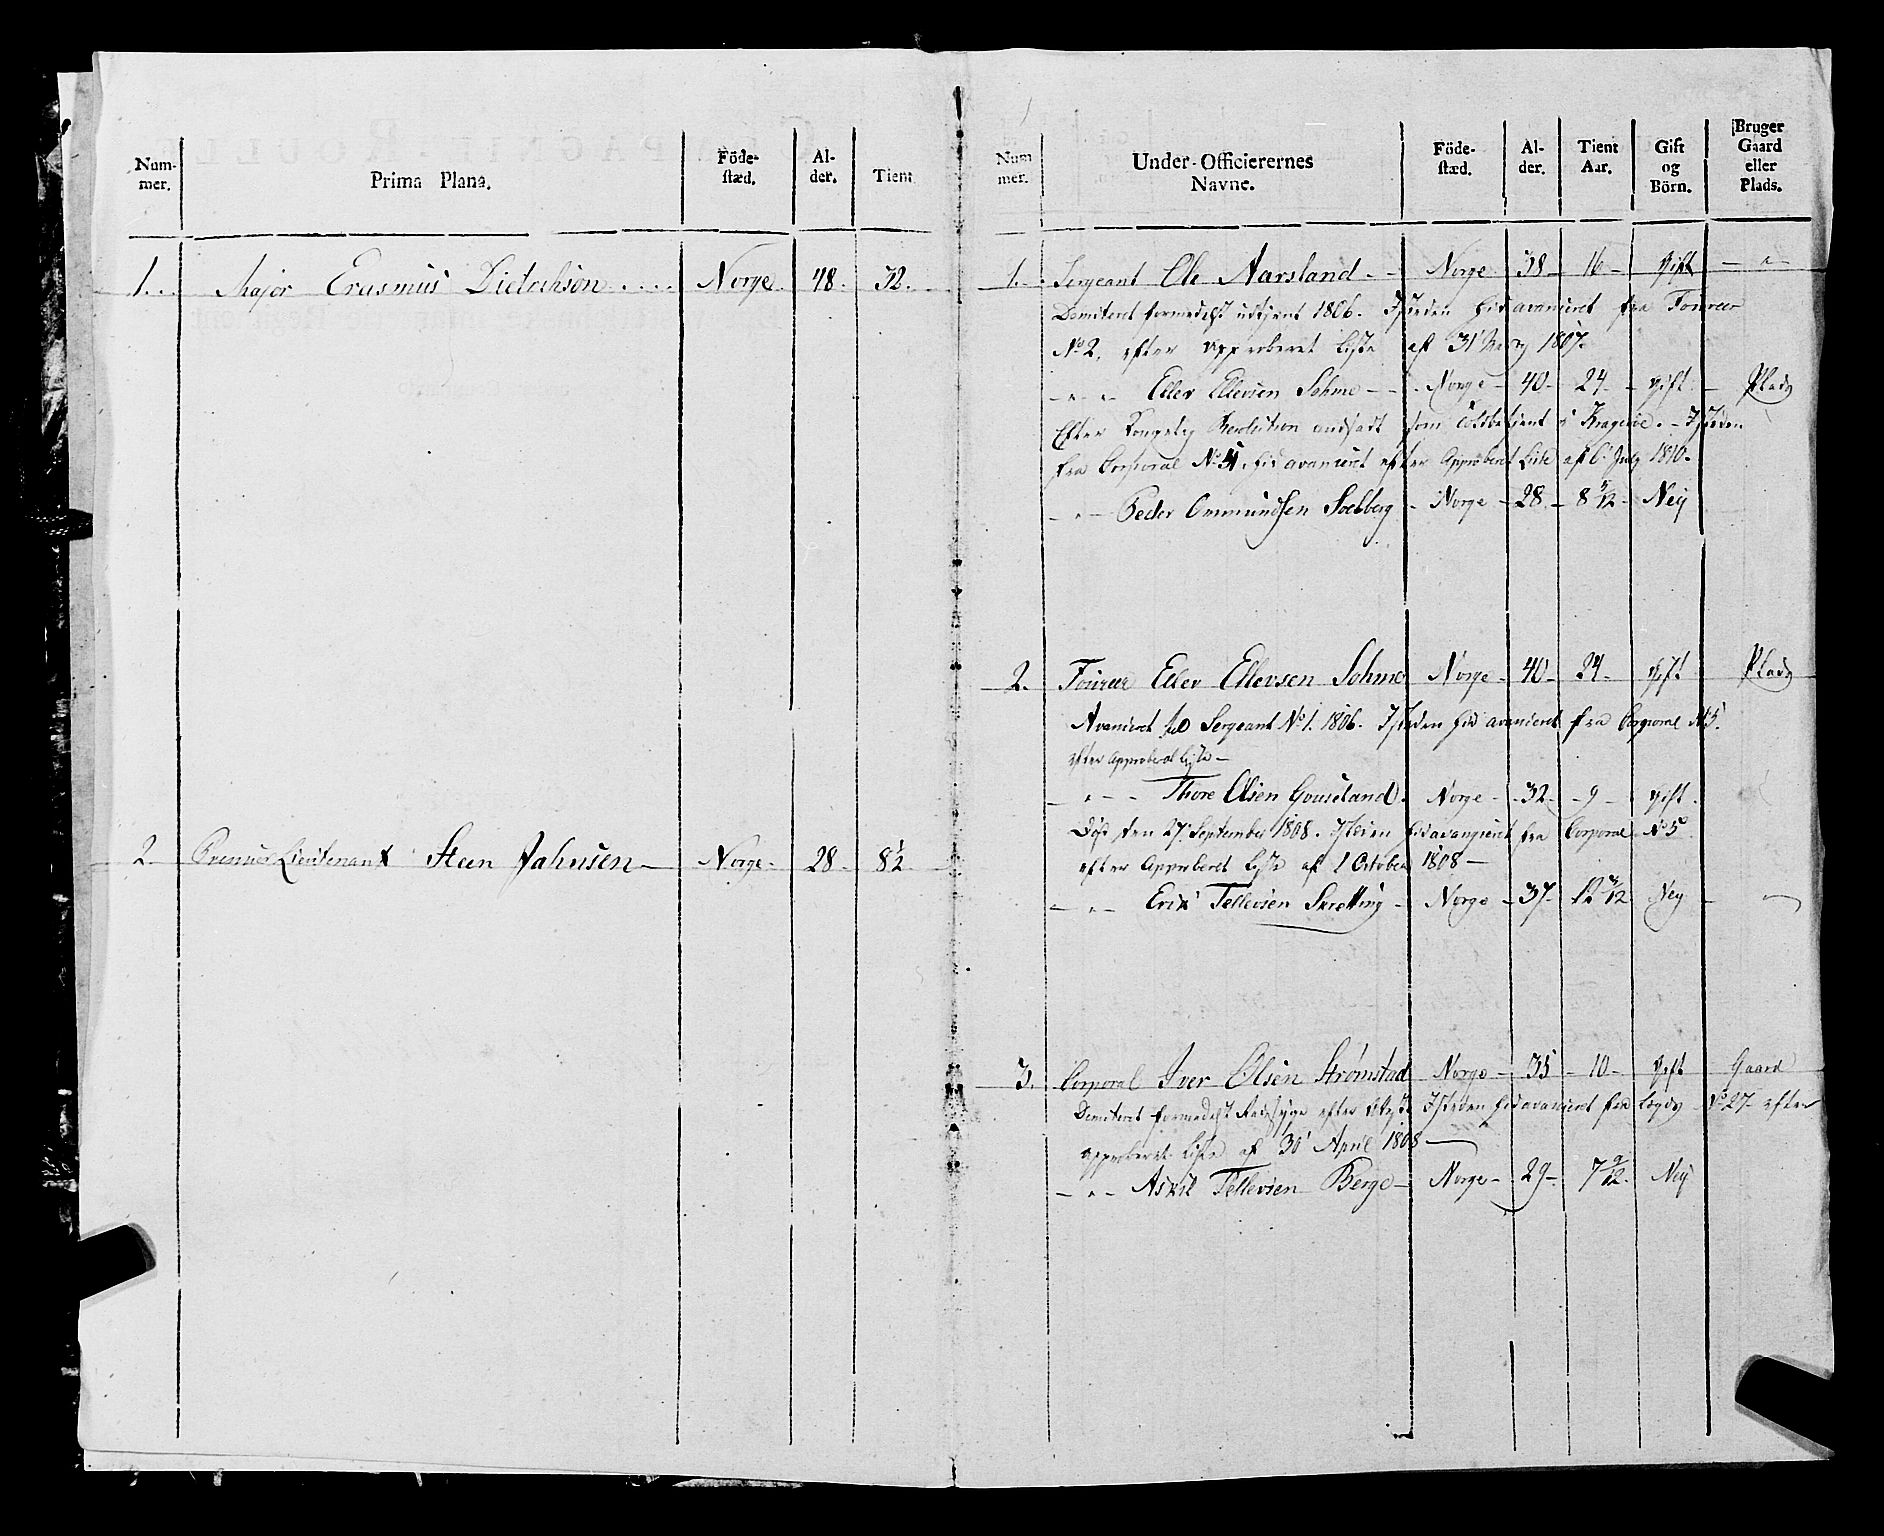 Num-
mer.
Prima Plana.
Föde-
stæd.
Al-
der.
Tient
1. Major Erasmus Dietrichson Norge 48. 32.
2. Premier Lieutenant Steen Jahnsen Norge 28 8½
Num
mer.
Under-Officierernes
Navne.
Föde-
stæd.
Al-
der.
Tient
Aar.
Gift
og
Börn.
Bruger
Gaard
eller
Plads.
1. Sergeant Ole Aarsland Norge 38 16 Gift
Demiteret formedelst udtjent 1806. Isteden hid avanceret fra Foureer
No 2. efter approberet Liste af 31 1807
Ellev Ellevsen Sohme Norge 40 24 gift Plads
Efter Kongelig Resolution andsadt som Toldbetjent i Kragerøe. Isteden
fra Corporal No 4. hid avanceret efter Approberet Liste af 6 July 1810.
Peder Ommundsen Soelberg Norge 28 8 5/12 Ney
2. Foureer Ellev Ellevsen Sohme Norge 40 24 gift Plads
Avanceret til Sergeant No 1. 1806. Isteden hid avanceret fra Corporal No 5.
efter Approberet Liste
Thore Olsen Gouseland Norge 32 9 gift
Død den 27 September 1808. Isteden hid avanceret fra Corporal No 5
efter Approberet Liste af 1 October 1808
Erik Tellevsen Skretting Norge 37 12 3/12 Ney
3. Corporal Iver Olsen Strømstad Norge 35 10 Gift Gaard
Demiteret formedelst efter Isteden hid avanceret fra Lægds No 27 efter
approberet Liste af 30 April 1808
Askil Tellevsen Berge Norge 29 7 9/12 Ney